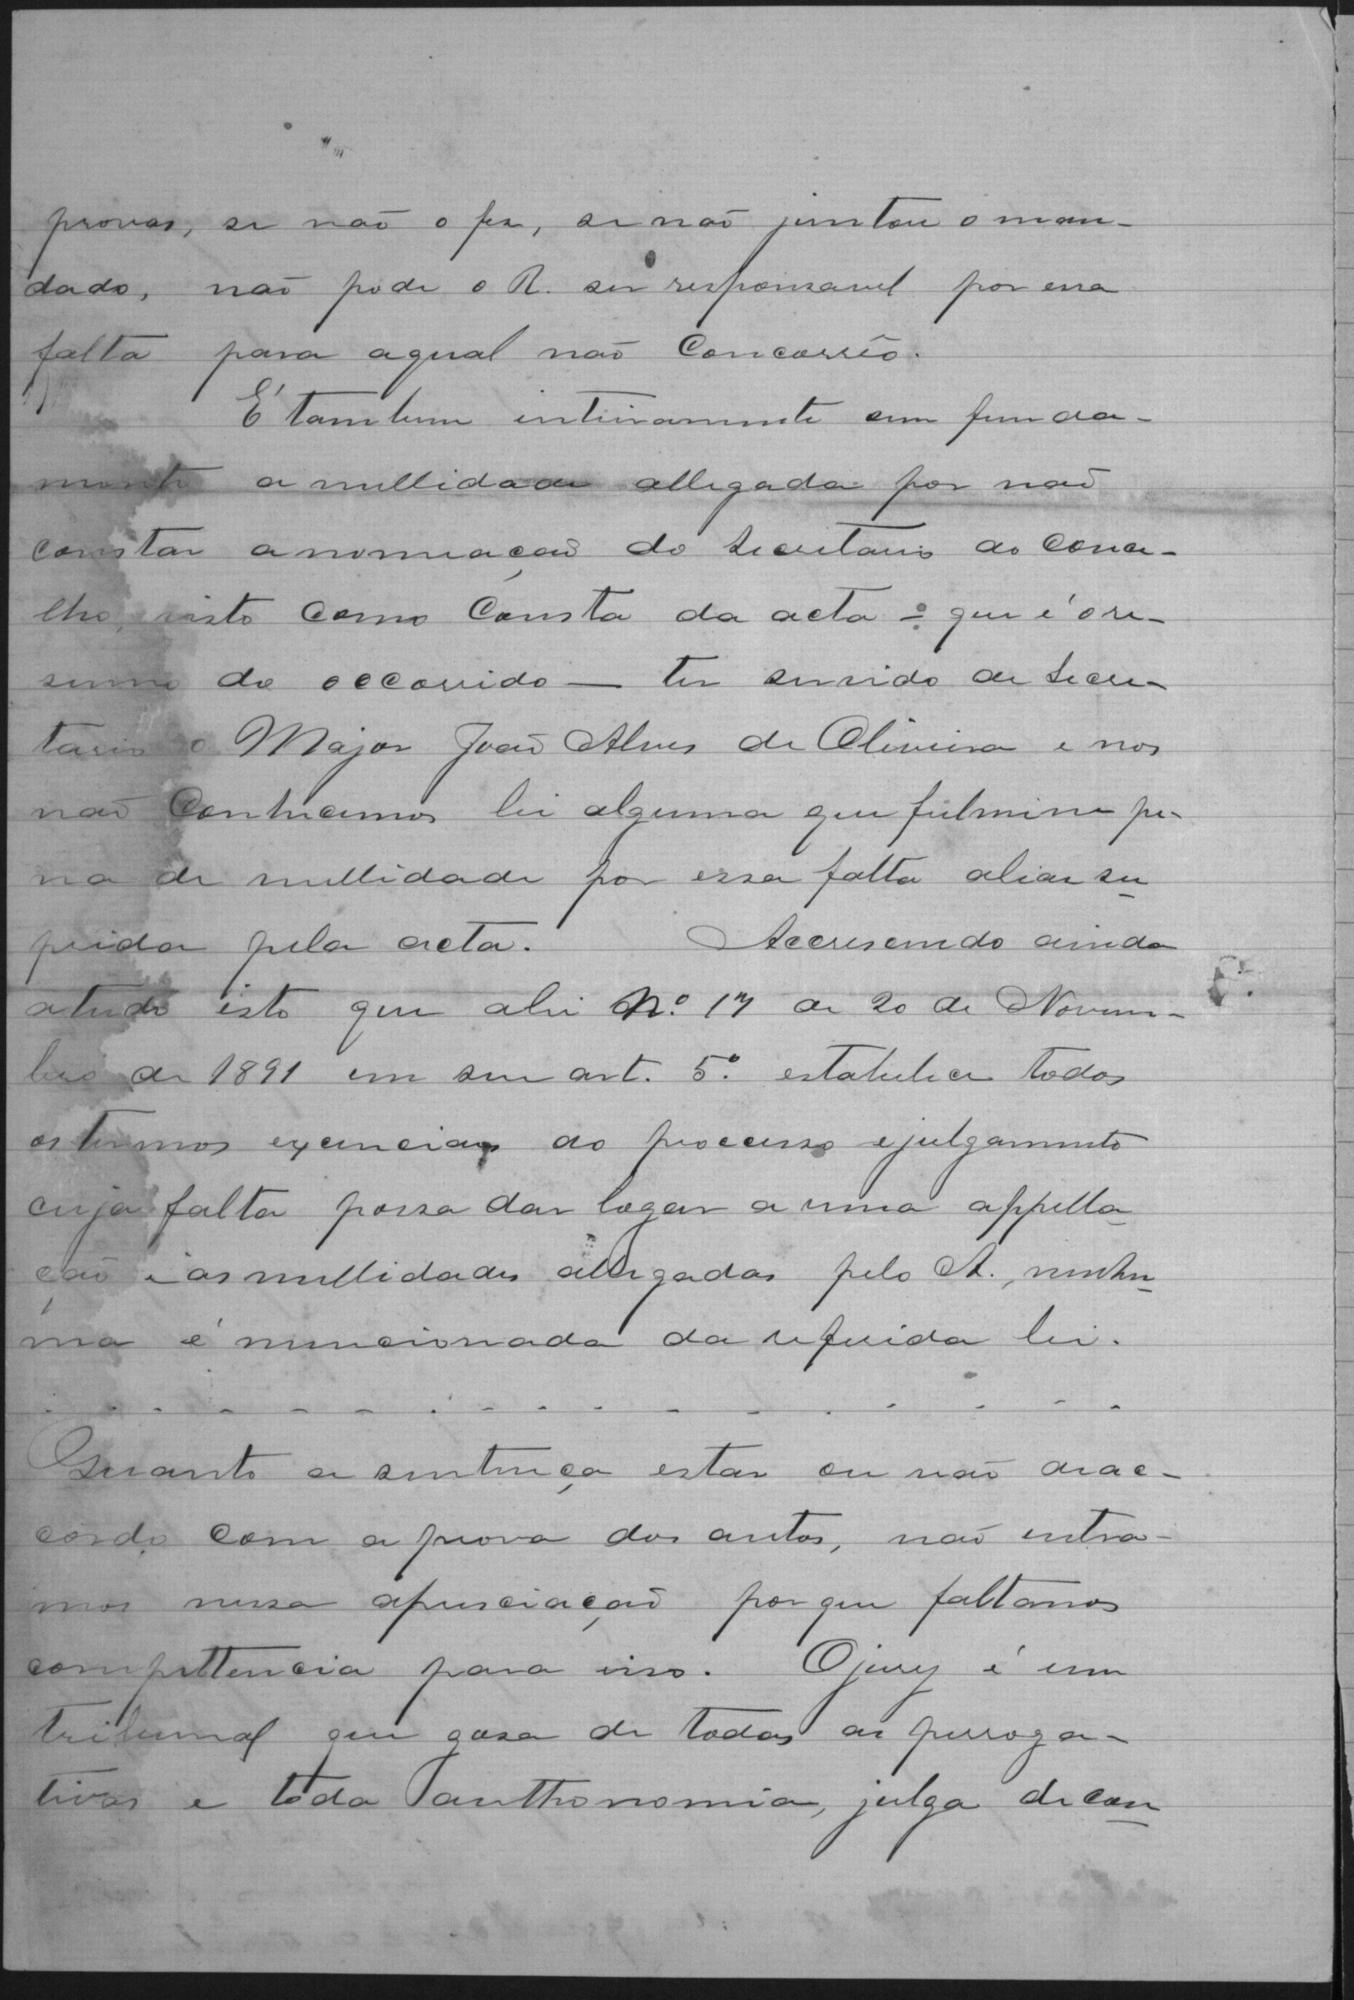 provas, se não o fez, se não juntou o man-
dado, não pode o R. ser responsavel por essa
falta para aqual não Concorrêo.
É tambem inteiramente sem funda-
mento a nullidade allegada por não
constar a nomeação do Secretario do Conce-
lho, visto como Consta da acta – que é o re-
sumo do occorrido – ter servido de Secre-
tario o Major João Alves de Oliveira e nos
não Conhecemos lei alguma que fulmine pe-
na de nullidade por essa falta alias su
prida pela acta. Accrescendo ainda
atudo isto que alei Nº 17 de 20 de Novem-
bro de 1891 em seu art. 5º estabelece todos
os termos exenciaes do processo ejulgamento
cuja falta possa dar logar a uma appella
ção e as nullidades allegadas pelo A., nenhu
ma é mencionada da referida lei.
. . . . . . . . . . . . . . . . .
Quanto a sentença estar ou não deac-
cordo com a prova dos autos, não entra-
mos nessa apreciação por que faltanos
compettencia para isso. Ojury é um
tribunal que gosa de todas as perroga-
tivas e toda authonomia, julga de con